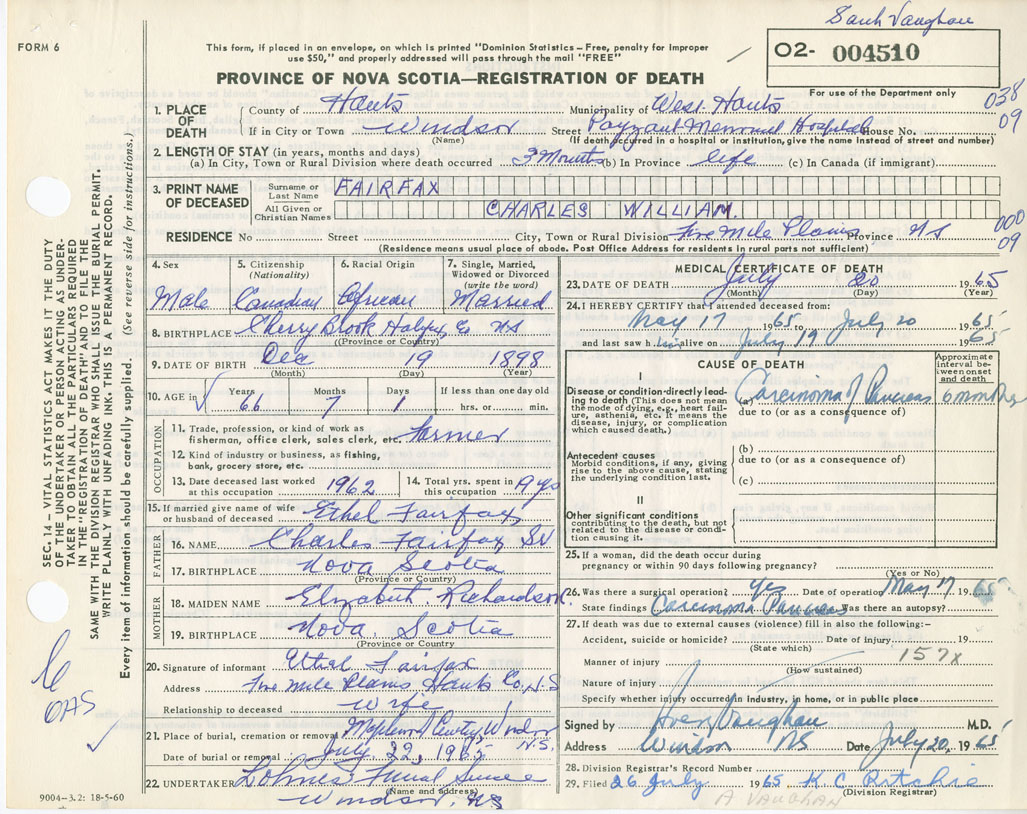 Vaughan
FORM 6
This form, if placed in an envelope, on which is printed "Dominion Statistics – Free, penalty for improper
use $50," and properly addressed will pass through the mail "FREE"
O2- 004510
PROVINCE OF NOVA SCOTIA—REGISTRATION OF DEATH
For use of the Department only
038
09
1. PLACE OF DEATH
County of Hants Municipality of West Hants
If in City or Town Windsor Street Payzant Memorial Hospital House No.
(Name) (If death occurred in a hospital or institution, give the name instead of street and number)
2. LENGTH OF STAY (in years, months and days)
(a) In City, Town or Rural Division where death occurred 3 Months (b) In Province life (c) In Canada (if immigrant)
3. PRINT NAME OF DECEASED
Surname or Last Name FAIRFAX
All Given or Christian Names CHARLES WILLIAM
000
09
RESIDENCE No. Street City, Town or Rural Division Five Mile Plains Province NS
(Residence means usual place of abode. Post Office Address for residents in rural parts not sufficient)
4. Sex Male
5. Citizenship (Nationality) Canadian
6. Racial Origin African
7. Single, Married, Widowed or Divorced (write the word) Married
8. BIRTHPLACE Cherry Brook Halifax Co NS
(Province or Country)
9. DATE OF BIRTH Dec 19 1898
(Month) (Day) (Year)
10. AGE in Years Months Days If less than one day old
66 7 1 hrs. or min.
OCCUPATION
11. Trade, profession, or kind of work as
fisherman, office clerk, sales clerk, etc. farmer
12. Kind of industry or business, as fishing,
bank, grocery store, etc.
13. Date deceased last worked
at this occupation 1962
14. Total yrs. spent in
this occupation
15. If married give name of wife
or husband of deceased Ethel Fairfax
FATHER
16. NAME Charles Fairfax Sr
17. BIRTHPLACE Nova Scotia
(Province or Country)
MOTHER
18. MAIDEN NAME Elizabeth Richardson
19. BIRTHPLACE Nova Scotia
(Province or Country)
20. Signature of informant Ethel Fairfax
Address Five Mile Plains Hants Co. N.S
Relationship to deceased Wife
21. Place of burial, cremation or removal Windsor N.S.
Date of burial or removal July 22, 1965
22. UNDERTAKER Service
(Name and address)
Windsor, NS
MEDICAL CERTIFICATE OF DEATH
23. DATE OF DEATH July 20 1965
(Month) (Day) (Year)
24. I HEREBY CERTIFY that I attended deceased from:
May 17 1965 to July 20 1965
and last saw him alive on July 19 1965
CAUSE OF DEATH
Approximate interval between onset and death
I
Disease or condition directly leading
to death (This does not mean
the mode of dying, e.g., heart failure,
asthenia, etc. It means the
disease, injury, or complication
which caused death.)
(a) Carcinoma of Pancreas 6 months
due to (or as a consequence of)
Antecedent causes
Morbid conditions, if any, giving
rise to the above cause, stating
the underlying condition last.
(b)
due to (or as a consequence of)
(c)
II
Other significant conditions
contributing to the death, but not
related to the disease or condition
causing it.
25. If a woman, did the death occur during
pregnancy or within 90 days following pregnancy?
(Yes or No)
26. Was there a surgical operation? Yes Date of operation May 17 1965
State findings Carcinoma Pancreas Was there an autopsy?
27. If death was due to external causes (violence) fill in also the following:–
Accident, suicide or homicide? Date of injury 19
(State which)
157X
Manner of injury
(How sustained)
Nature of injury
Specify whether injury occurred in industry, in home, or in public place
Signed by Vaughan M.D.
Address Windsor NS Date July 20, 1965
28. Division Registrar's Record Number
29. Filed 26 July 1965 K C Ritchie
(Division Registrar)
A VAUGHAN
SEC. 14 – VITAL STATISTICS ACT MAKES IT THE DUTY
OF THE UNDERTAKER OR PERSON ACTING AS UNDER-
TAKER TO OBTAIN ALL THE PARTICULARS REQUIRED
IN THE "REGISTRATION OF DEATH" AND TO FILE THE
SAME WITH THE DIVISION REGISTRAR WHO SHALL ISSUE THE BURIAL PERMIT.
WRITE PLAINLY WITH UNFADING INK. THIS IS A PERMANENT RECORD.
Every item of information should be carefully supplied. (See reverse side for instructions.)
OAS
9004–3.2: 18-5-60